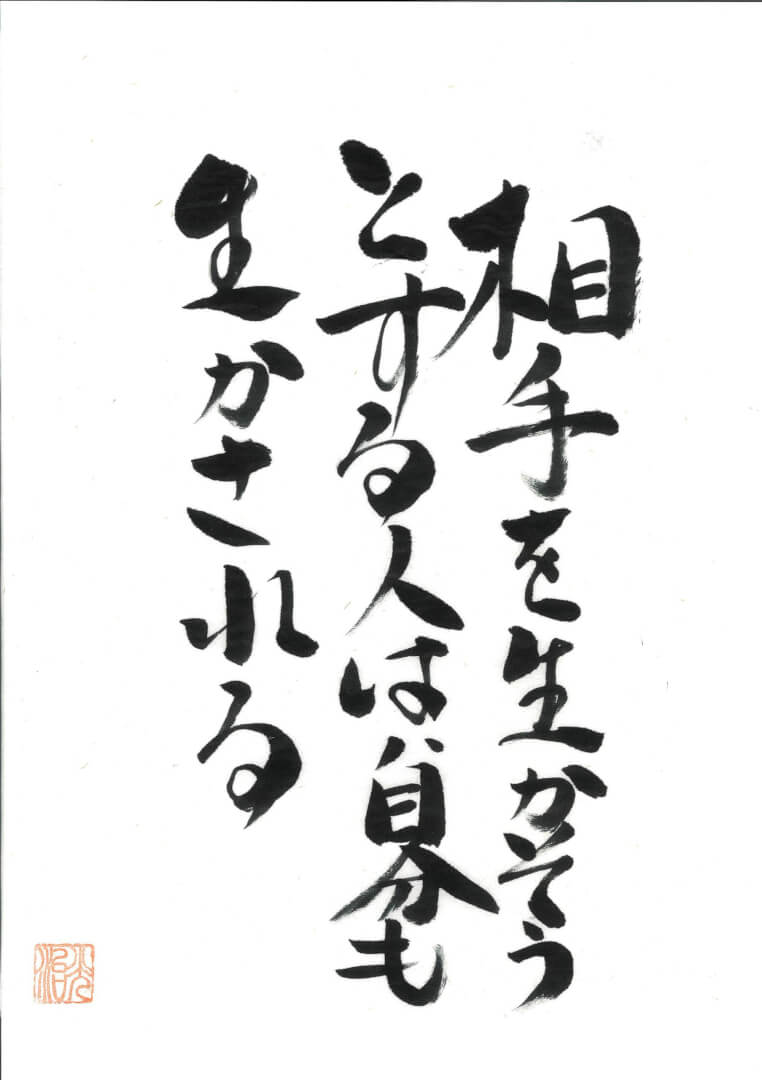 相手を生かそう
とする人は自分も
生かされる